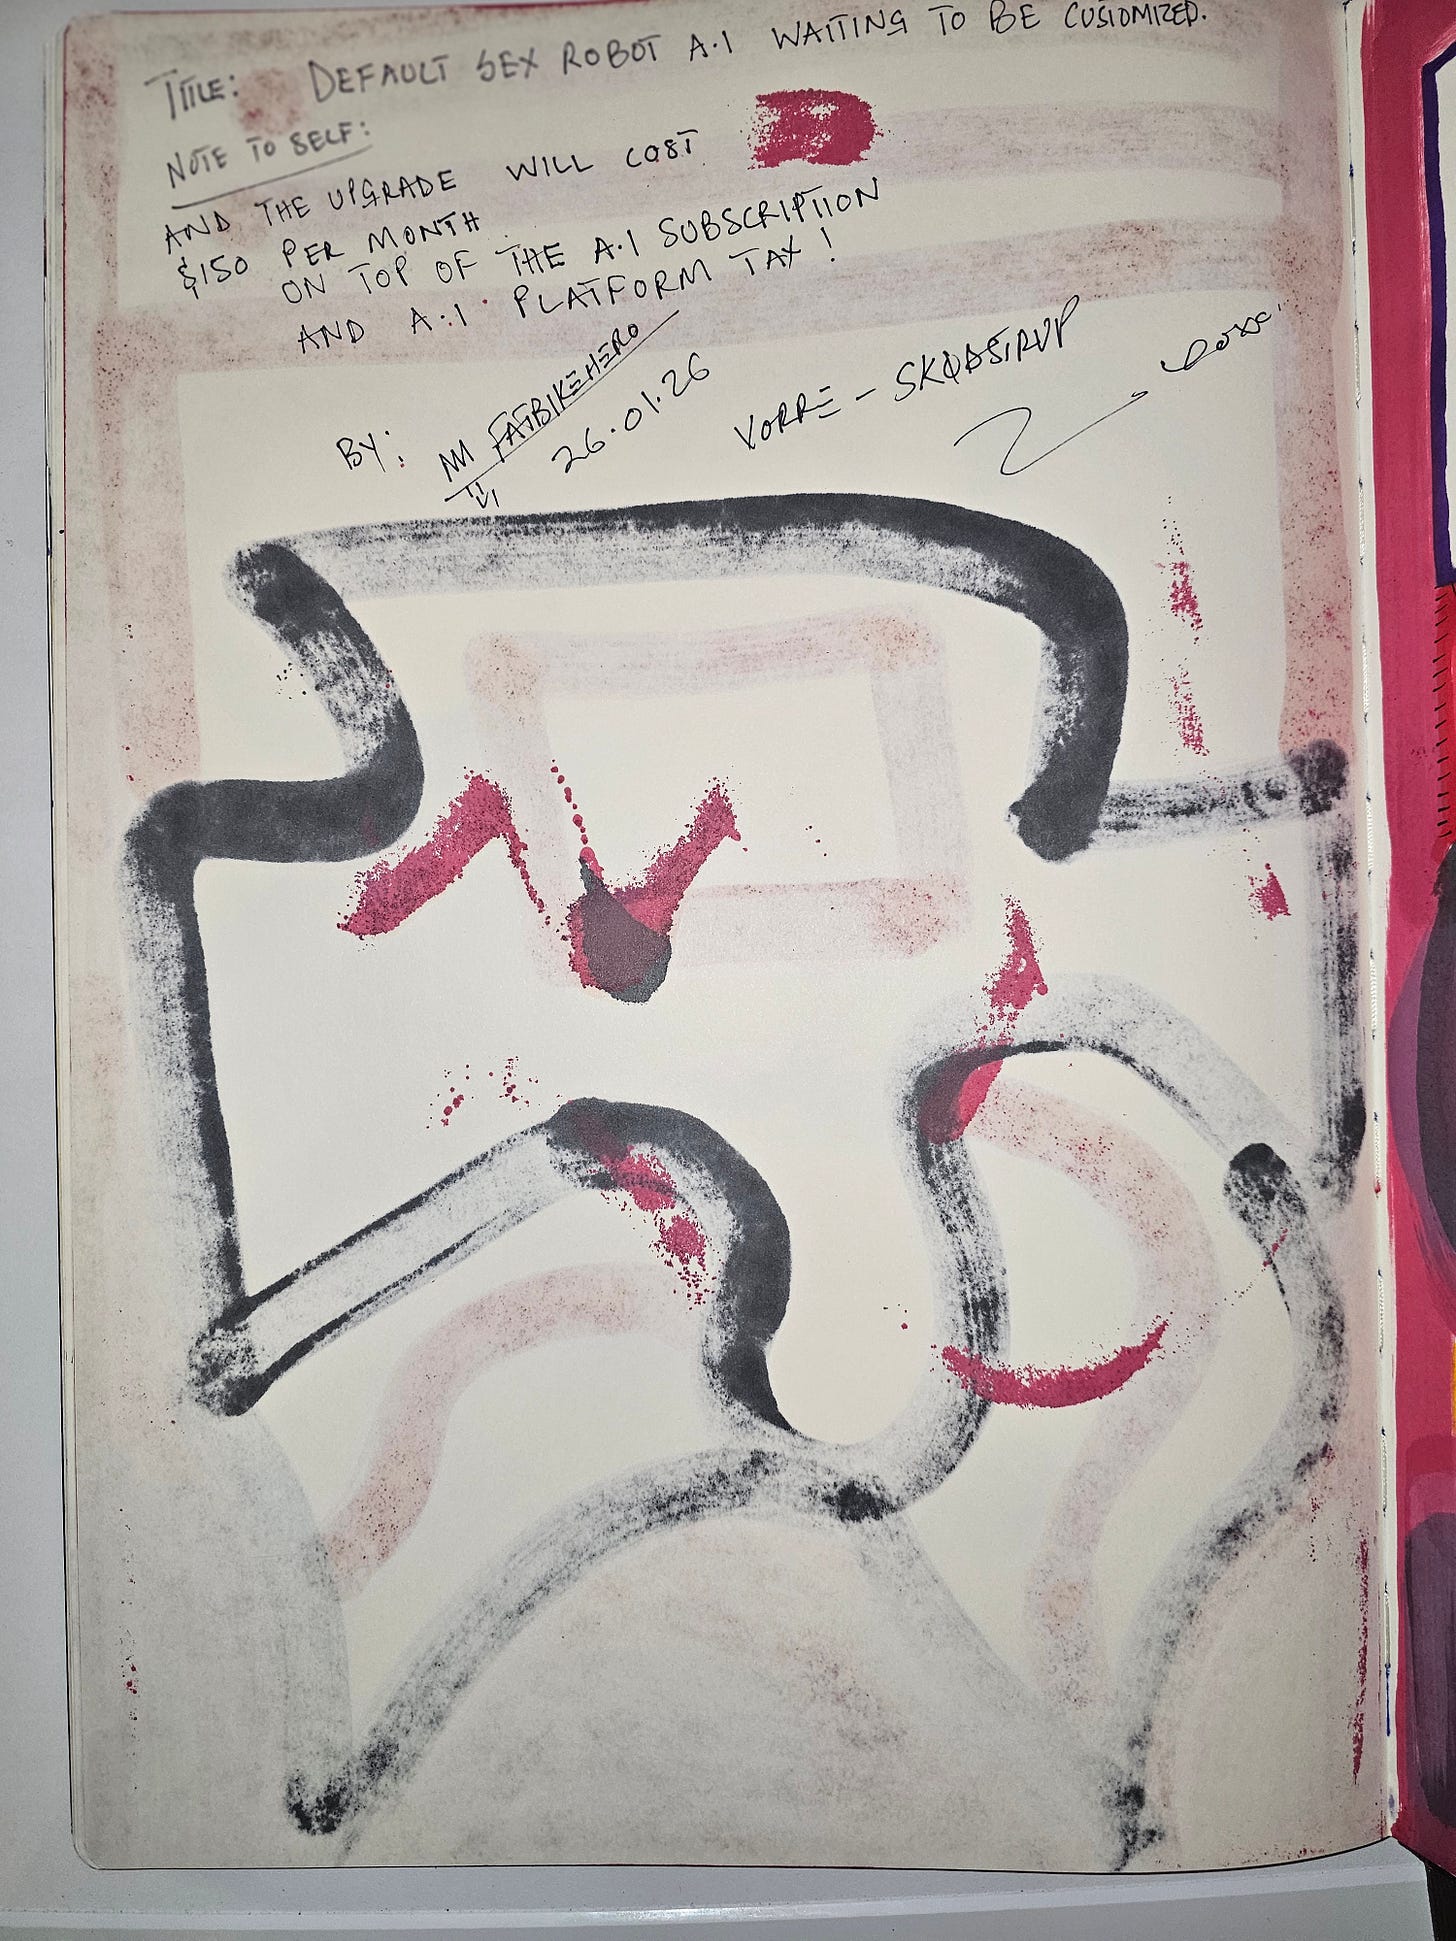 TITLE: DEFAULT SEX ROBOT A.I WAITING TO BE CUSTOMIZED.
NOTE TO SELF:
AND THE UPGRADE WILL COST
$150 PER MONTH
ON TOP OF THE A.I SUBSCRIPTION
AND A.I PLATFORM TAX!
BY: FATBIKEHERO
26.01.26
VORRE - SKØDSTRUP